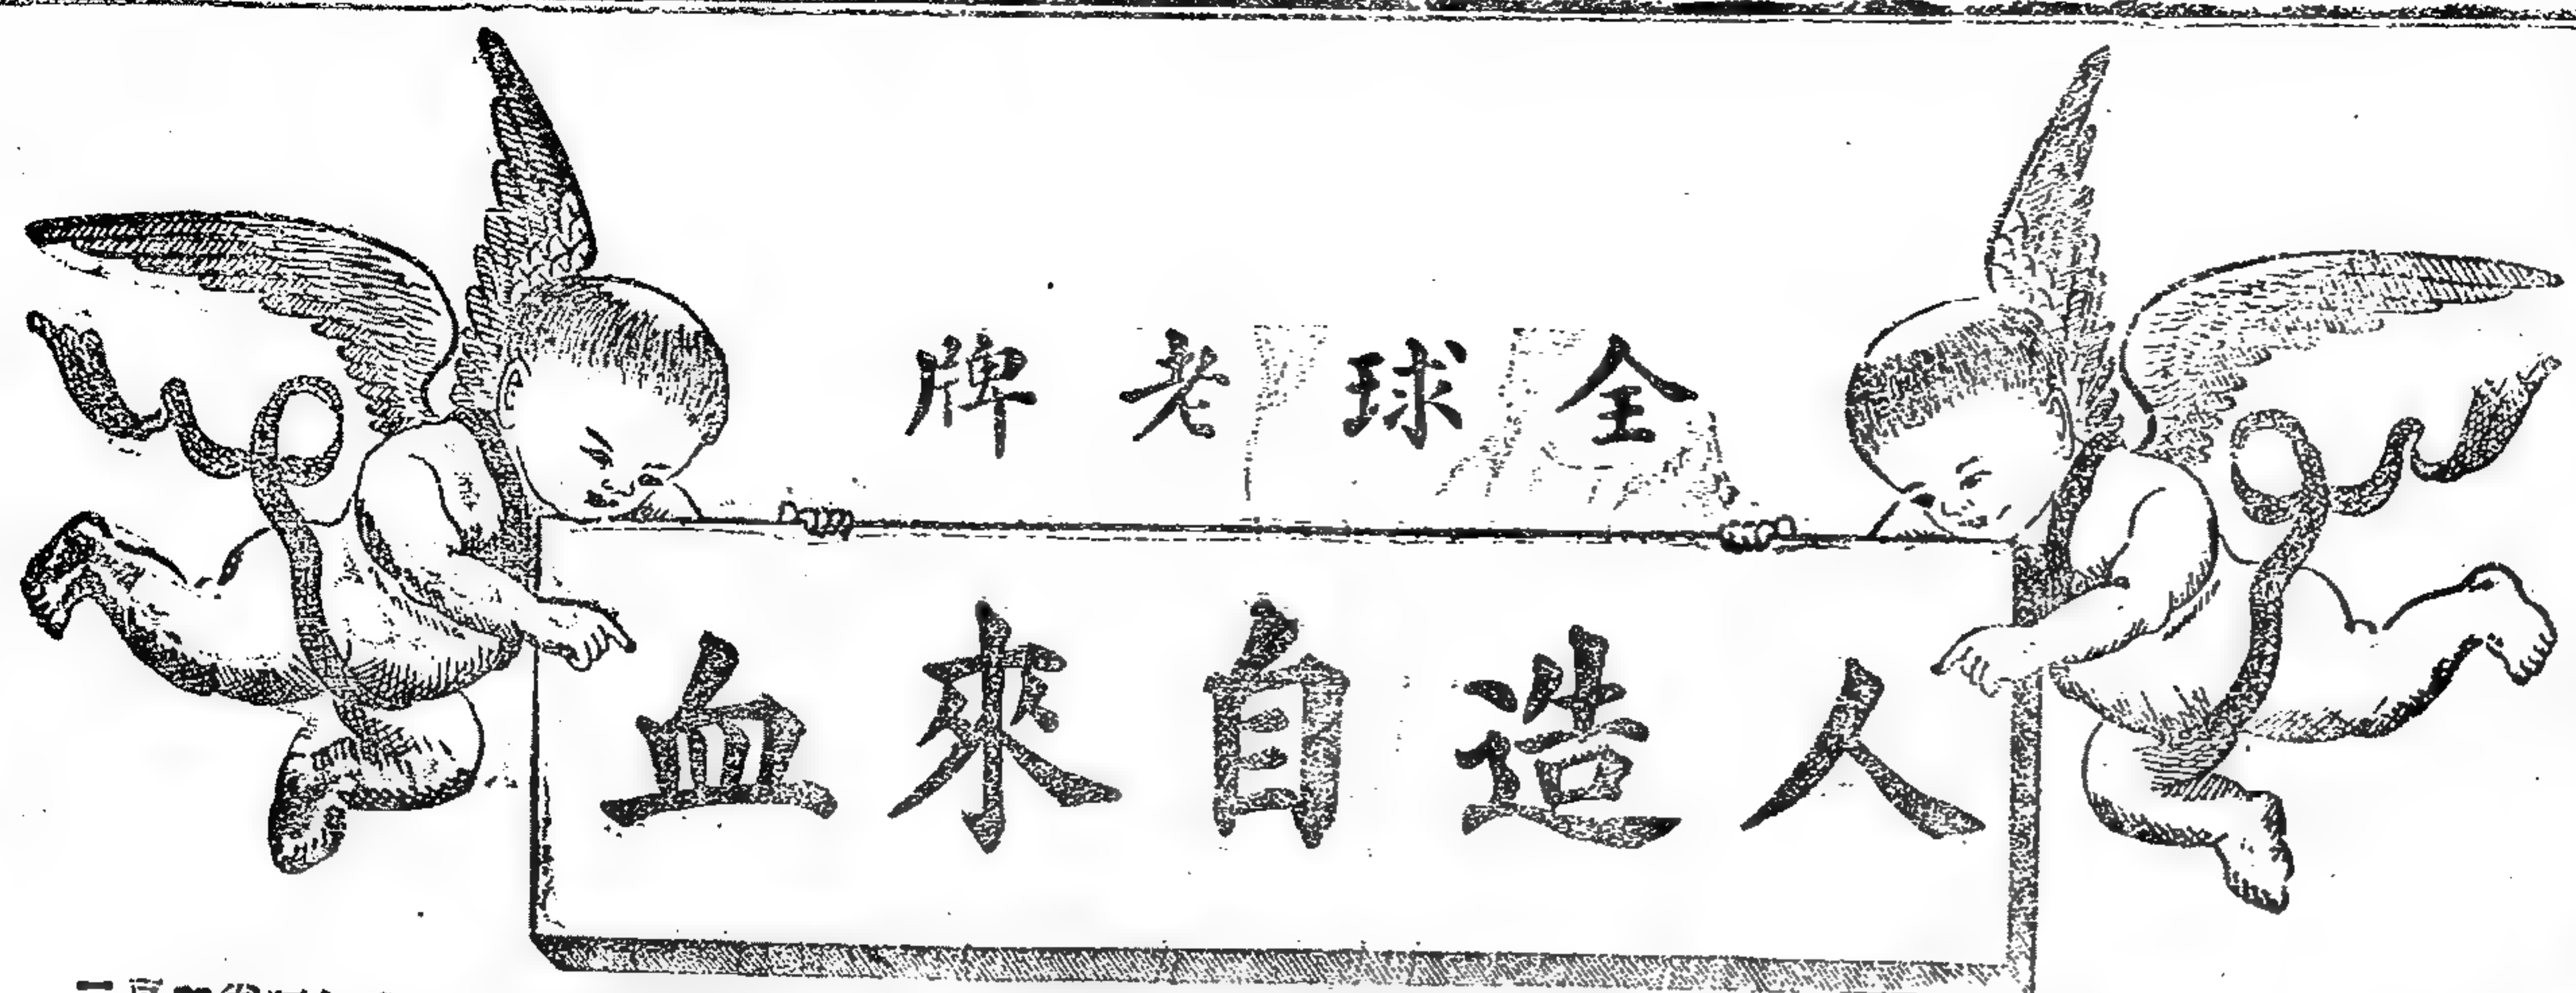 全球老牌
人造自來血